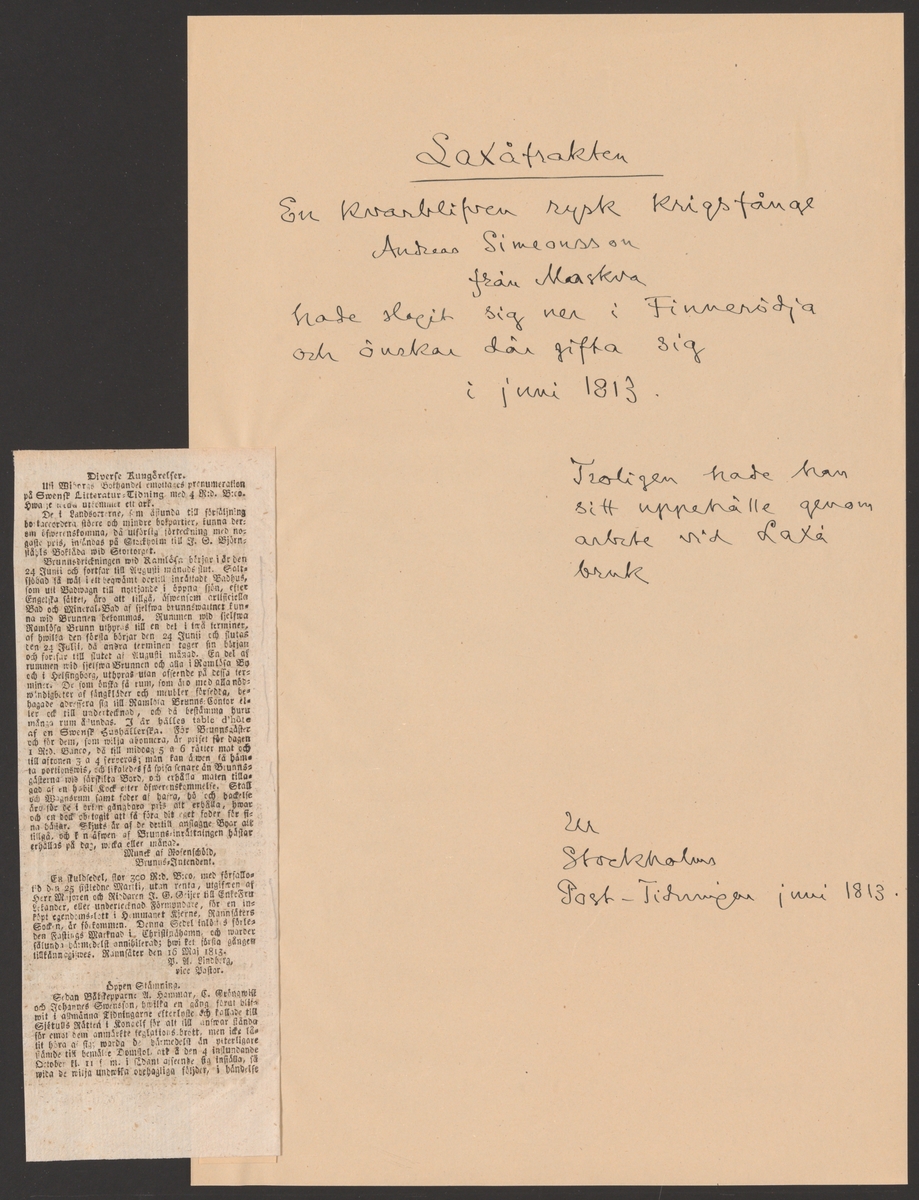 Laxåtrakten
En kvarblifven rysk krigsfånge
Andreas Simeonsson
från Maskva
hade slagit sig ner i Finnerödja
och önskar där gifta sig
i juni 1813.
Troligen hade han
sitt uppehälle genom
arbete vid Laxå
bruk
Ur
Stockholms
Post-Tidningen juni 1813.
Diverse Kungörelser.
Uti Wiborgs Bokhandel emottages prenumeration
på Swensk Litteratur-Tidning med 4 R:d. B:co.
Hwarje wecka utkommer ett ark.
De i Landsorterne, som åstunda till försäljning
bortaccordera större och mindre bokpartier, kunna der-
om öfwerenskomma, då utförlig förteckning med no-
gaste pris, insändas på Stockholm till J. G. Björn-
ståhls Boklåda wid Stortorget.
Brunnsdrickningen wid Ramlösa börjar i år den
24 Junii och fortfar till Augusti månads slut. Salt-
sjöbad få wäl i ett beqwämt dertill inrättadt Badhus,
som uti Badwagn till nyttjande i öppna sjön, efter
Engelska sättet, äro att tillgå, äfwensom artificiella
Bad och Mineral-Bad af sjelfwa brunnswattnet kun-
na wid Brunnen bekommas. Rummen wid sjelfwa
Ramlösa Brunn uthyras till en del i twå terminer,
af hwilka den första börjar den 24 Junii och slutas
den 24 Julii, då andra terminen tager sin början
och fortfar till slutet af Augusti månad. En del af
rummen wid sjelfwa Brunnen och alla i Ramlösa By
och i Helsingborg, uthyras utan afseende på dessa ter-
miner. De som önska få rum, som äro med alla nöd-
wändigheter af sängkläder och meubler försedda, be-
hagade adressera sig till Ramlösa Brunns-Contor el-
ler ock till undertecknad, och då bestämma huru
många rum åstundas. I år hålles table d'hôte
af en Swensk Hushållerska. För Brunnsgäster
och för dem, som wilja abonnera, är priset för dagen
1 R:d. Banco, då till middag 5 a 6 rätter mat och
till aftonen 3 a 4 serveras; man kan äwen få häm-
ta portionswis, och likaledes få spisa senare än Brunns-
gästerna wid särskilta Bord, och erhålla maten tilla-
gad af en habil Kock efter öfwerenskommelse. Stall
och Wagnsrum samt foder af hafra, hö och hackelse
äro för de i orten gångbara pris att erhålla, hwar
och en dock obetagit att få föra dit eget foder för si-
na hästar. Skjuts är af de dertill anslagne Byar att
tillgå, och kan äfwen af Brunns-inrättningen hästar
erhållas på dag, wecka eller månad.
Munck af Rosenschöld,
Brunns-Intendent.
En skuldsedel, stor 300 R:d. B:co, med förfallo-
tid den 25 sistledne Martii, utan renta, utgifwen af
Herr Majoren och Riddaren J. G. Geijer till Enkefru
Lelander, eller undertecknad Förmyndare, för en in-
köpt egendomslott i Hemmanet Kjerne, Rannsäters
Socken, är förkommen. Denna Sedel inlöstes förle-
den Fastings Marknad i Christinæhamn, och warder
sålunda härmedelst annibilerad; hwilket första gången
tillkännagifwes. Rannsäter den 16 Maj 1813.
P. A. Lindberg,
vice Pastor.
Öppen Stämning.
Sedan Båtskepparne A. Hammar, C. Gröngwist
och Johannes Swensson, hwilka en gång förut blif-
wit i allmänna Tidningarne efterlyste och kallade till
Sjötulls Rätten i Kongelf för att till answar stånda
för emot dem anmärkte seglations-brott, men icke lå-
tit höra af sig; warda de härmedelst än ytterligare
stämde till bemälte Domstol, att å den 4 instundande
October kl. 11 f. m. i sådant afseende sig inställa, så
wida de wilja undwika obehagliga följder, i händelse